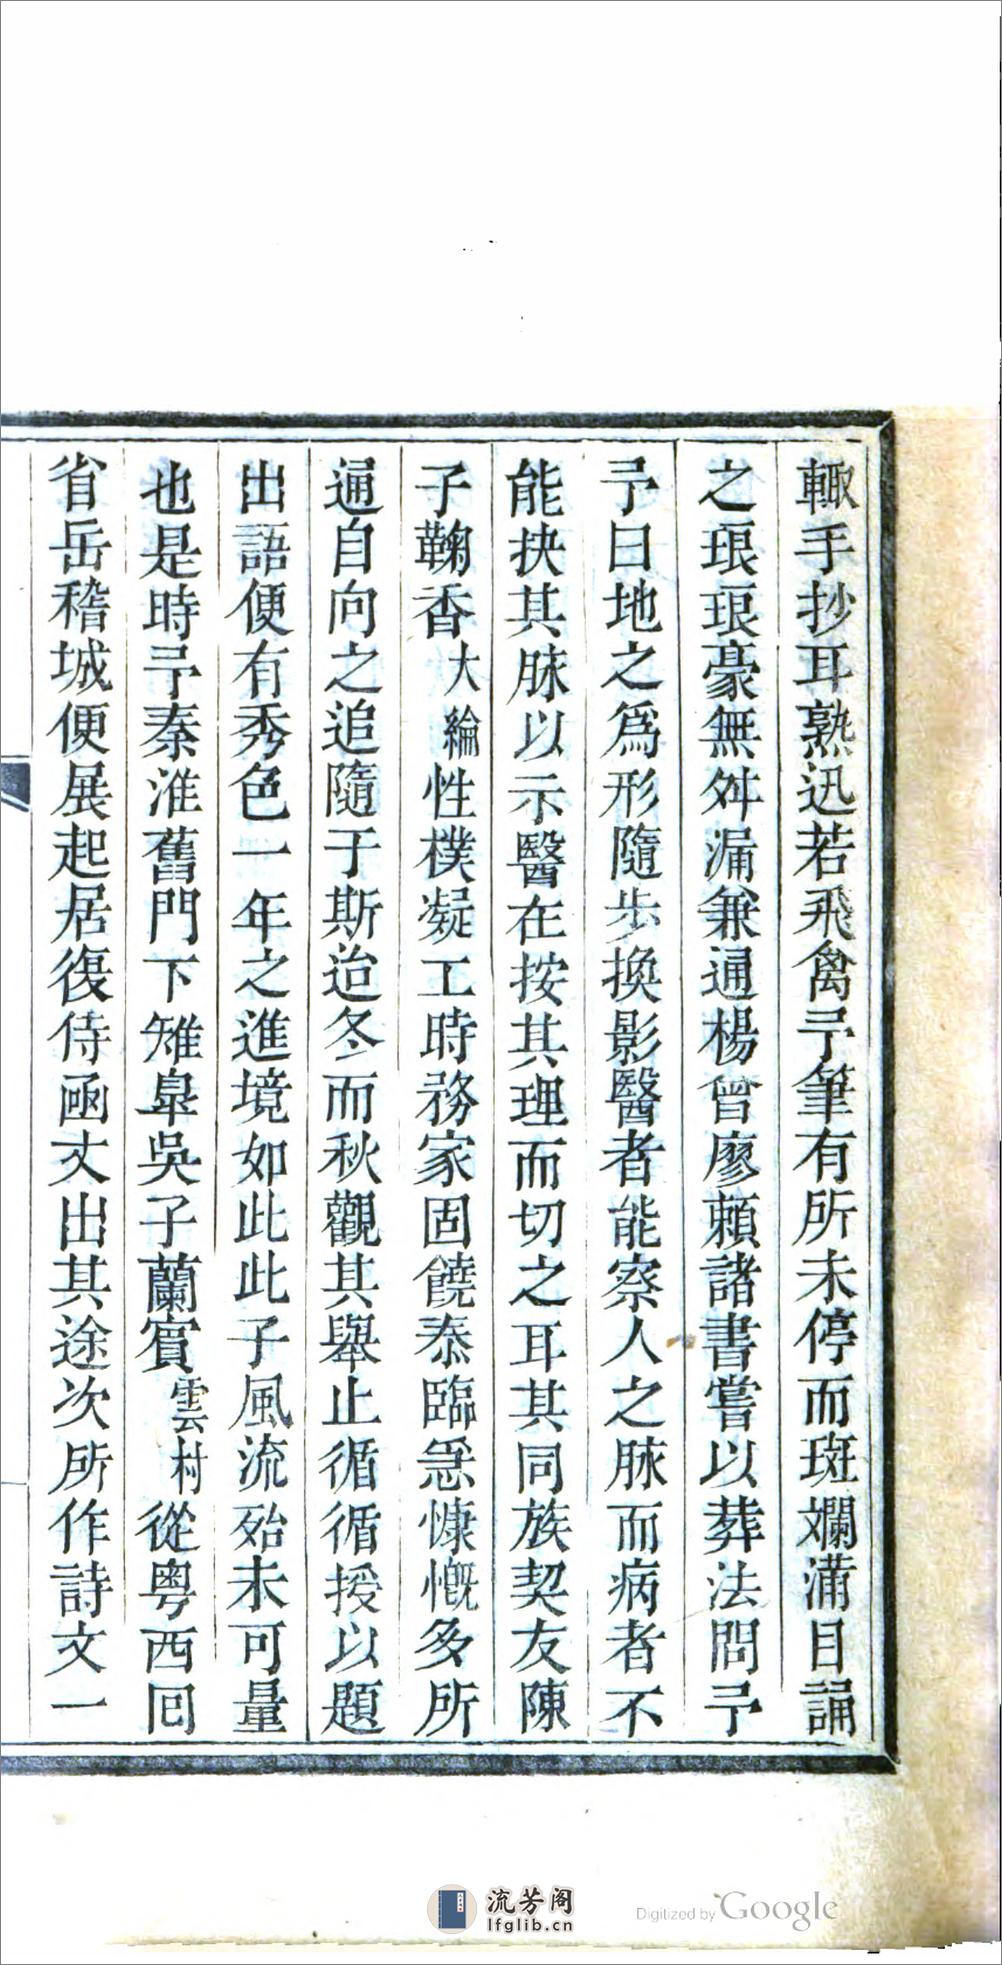 輙手抄耳熟迅若飛禽予筆有所未停而斑斕滿目誦
之琅琅豪無舛漏兼通楊曾廖賴諸書嘗以葬法問予
予曰地之爲形隨步換影醫者能察人之脉而病者不
能抉其脉以示醫在按其理而切之耳其同族契友陳
子鞠香大綸性樸凝工時務家固饒泰臨急慷慨多所
通自向之追隨于斯迨冬而秋觀其舉止循循授以題
出語便有秀色一年之進境如此此子風流殆未可量
也是時予秦淮舊門下雉皐吳子蘭賓雲村從粵西回
省岳稽城便展起居復侍函丈出其途次所作詩文一
流芳阁
lfglib.cn
Digitized by Google